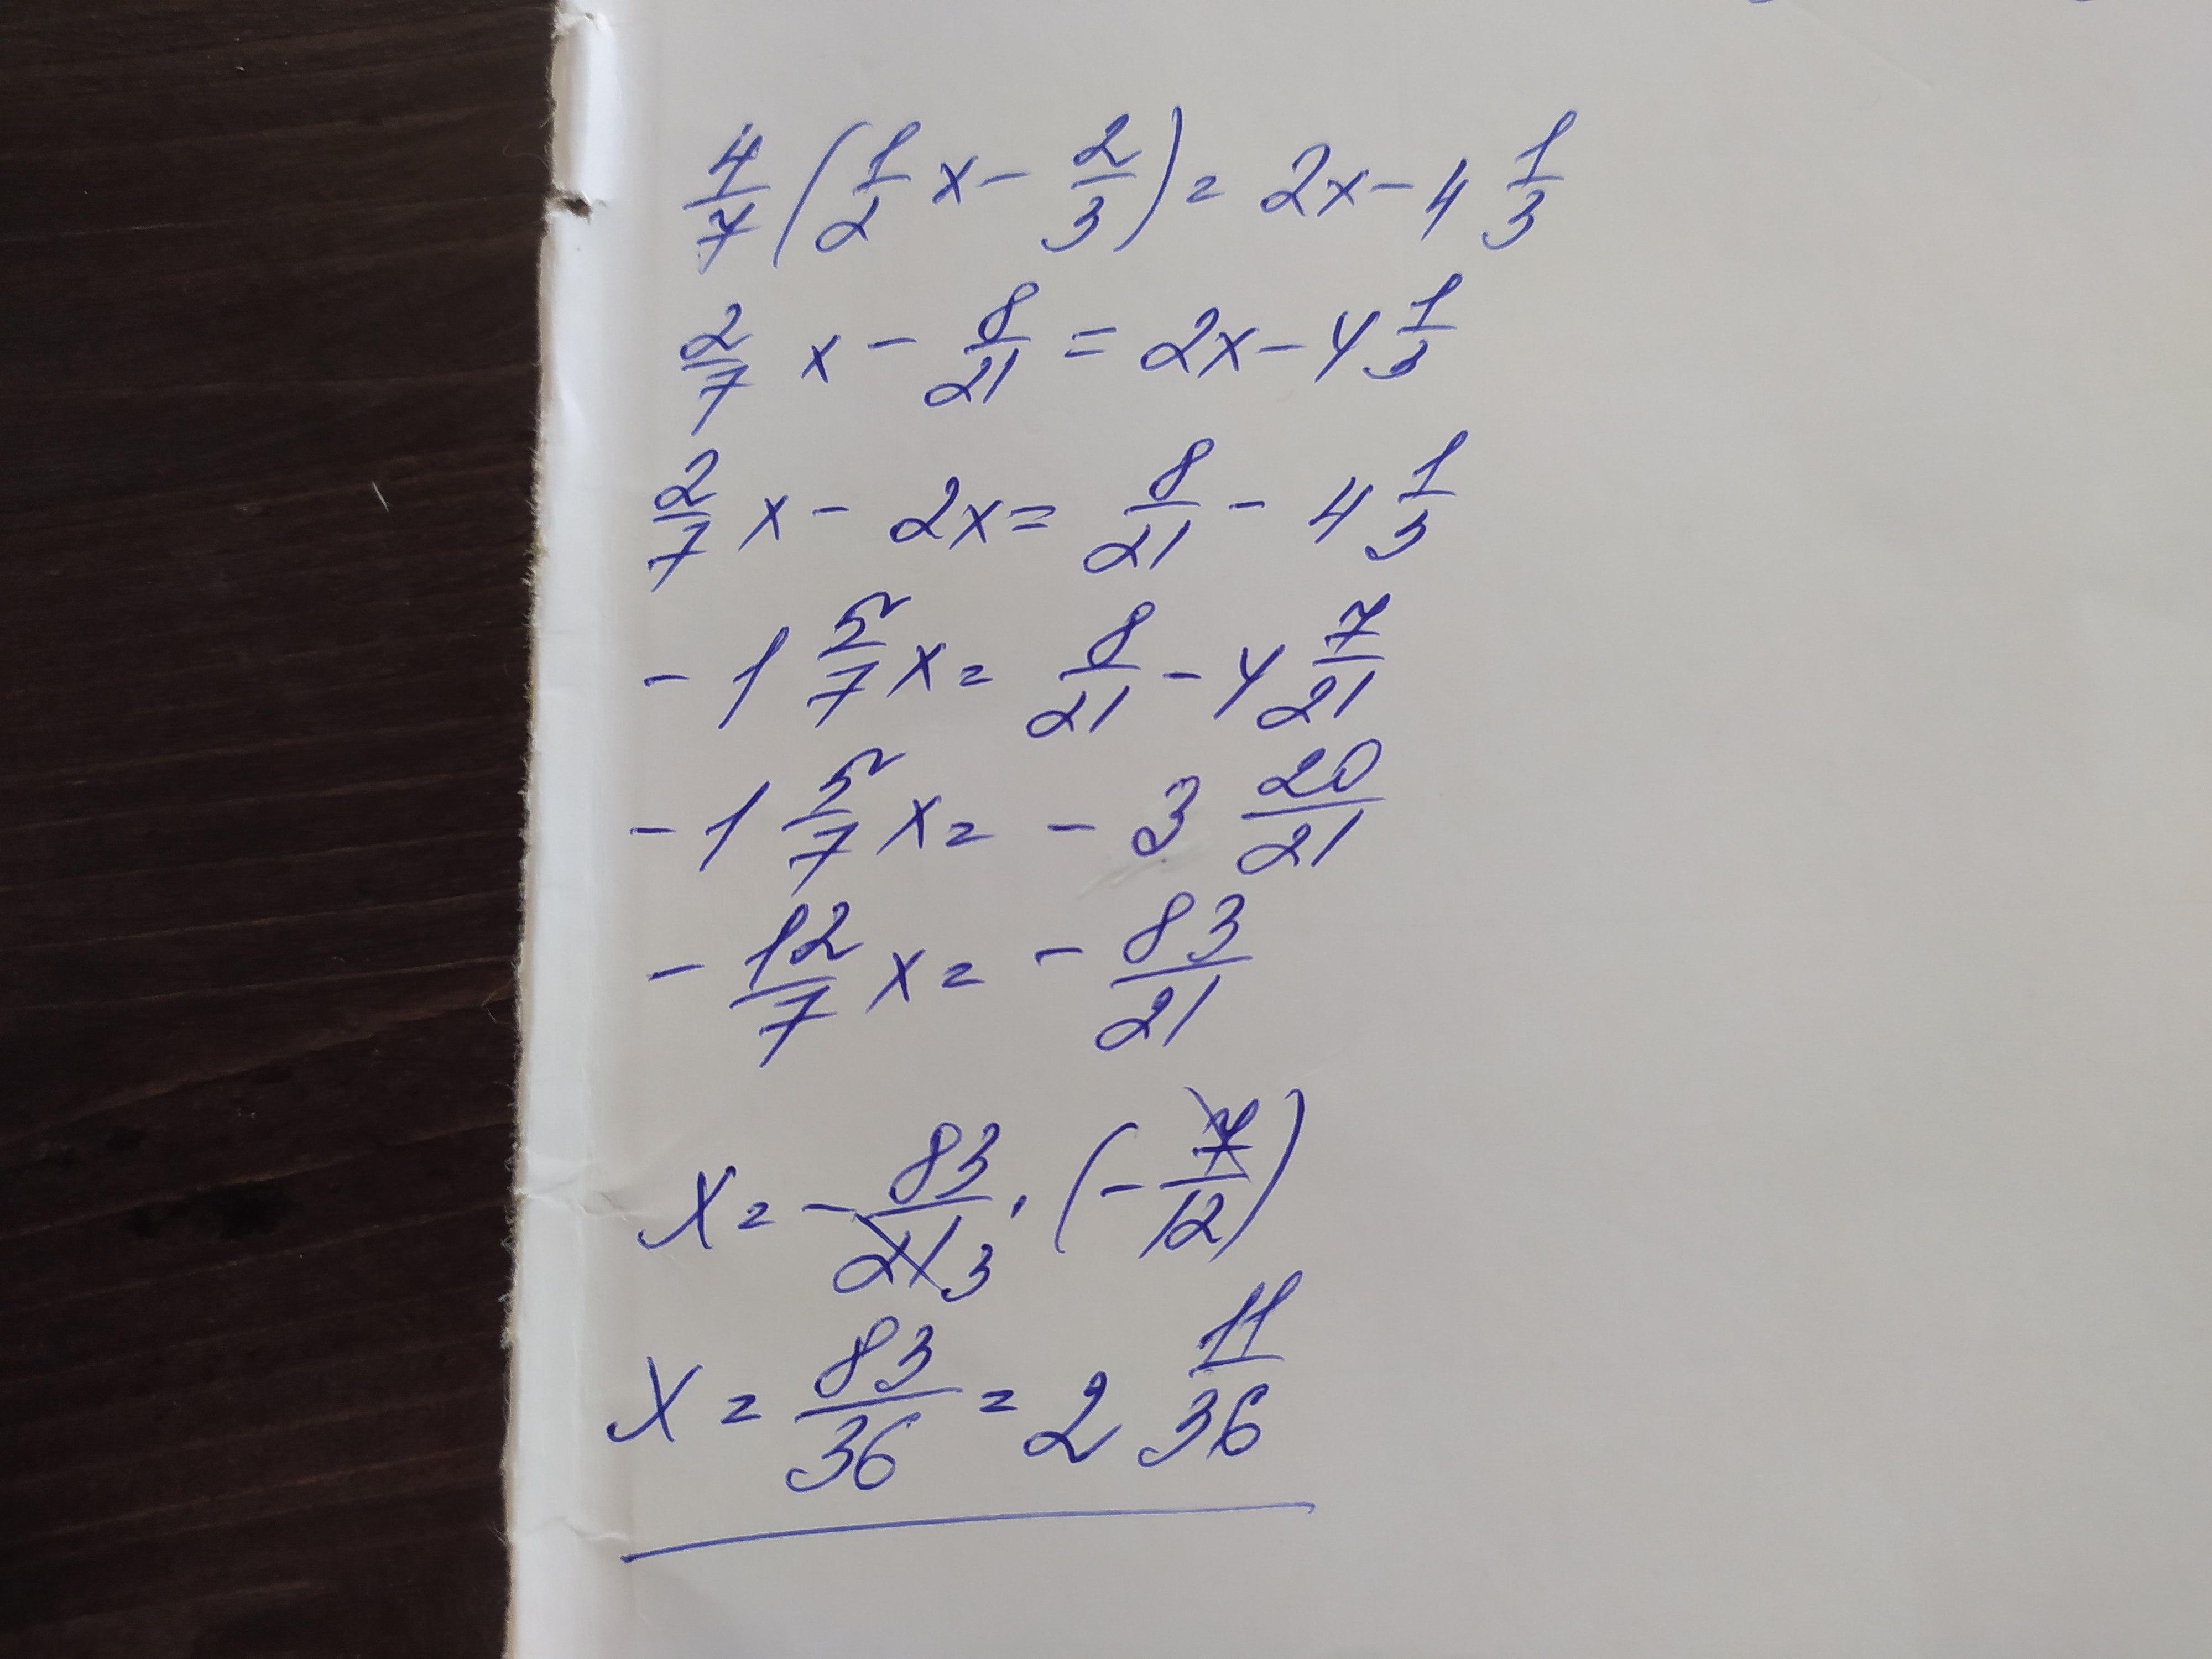 4/7 (1/2 x - 2/3) = 2x - 4 1/3
2/7 x - 8/21 = 2x - 4 1/3
2/7 x - 2x = 8/21 - 4 1/3
- 1 5/7 x = 8/21 - 4 7/21
- 1 5/7 x = - 3 20/21
- 12/7 x = - 83/21
x = - 83/21 3 · (- 7/12)
x = 83/36 = 2 11/36